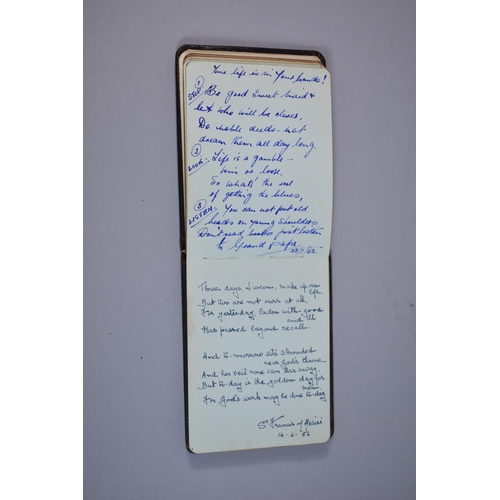 Your life is in Your hands!
1
STOP Be good sweet maid &
let who will be clever,
Do noble deeds - not
dream them all day long.
2
LOOK:- Life is a gamble -
win or lose.
So what's the use
of getting the blues,
3
LISTEN:- You can not put old
heads on Young shoulders
Don't read books just listen
to Grand papa
Three days, I ween, make up our
life
But two are not ours at all,
For yesterday, laden with good
and ill,
Has passed beyond recall.
And to-morrow sits shrouded
near God's throne,
And her veil none can tear away.
But to-day is the golden day for
men,
For God's work may be done to-day
St Francis of Assisi
14-6-52